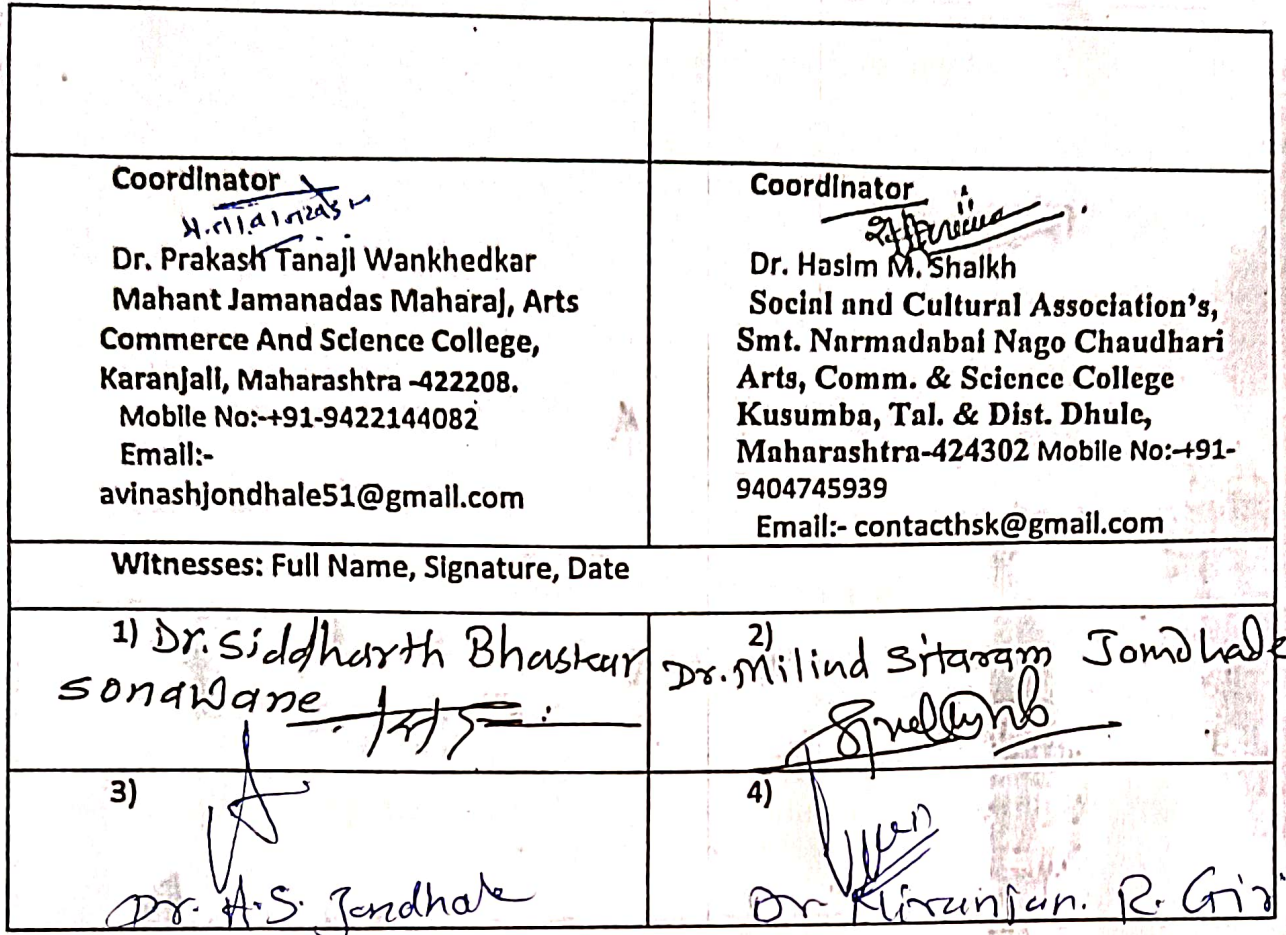 Coordinator
Dr. Prakash Tanaji Wankhedkar
Mahant Jamanadas Maharaj, Arts
Commerce And Science College,
Karanjali, Maharashtra -422208.
Mobile No:-+91-9422144082
Email:-
avinashjondhale51@gmail.com
Coordinator
Dr. Hasim M. Shaikh
Social and Cultural Association's,
Smt. Narmadabai Nago Chaudhari
Arts, Comm. & Science College
Kusumba, Tal. & Dist. Dhule,
Maharashtra-424302 Mobile No:-+91-
9404745939
Email:- contacthsk@gmail.com
Witnesses: Full Name, Signature, Date
1) Dr. Siddharth Bhaskar
Sonawane
2)
Dr. Milind Sitaram Jomdhale
3)
Dr. A.S. Jondhale
4)
Dr. Niranjan. R. Giri